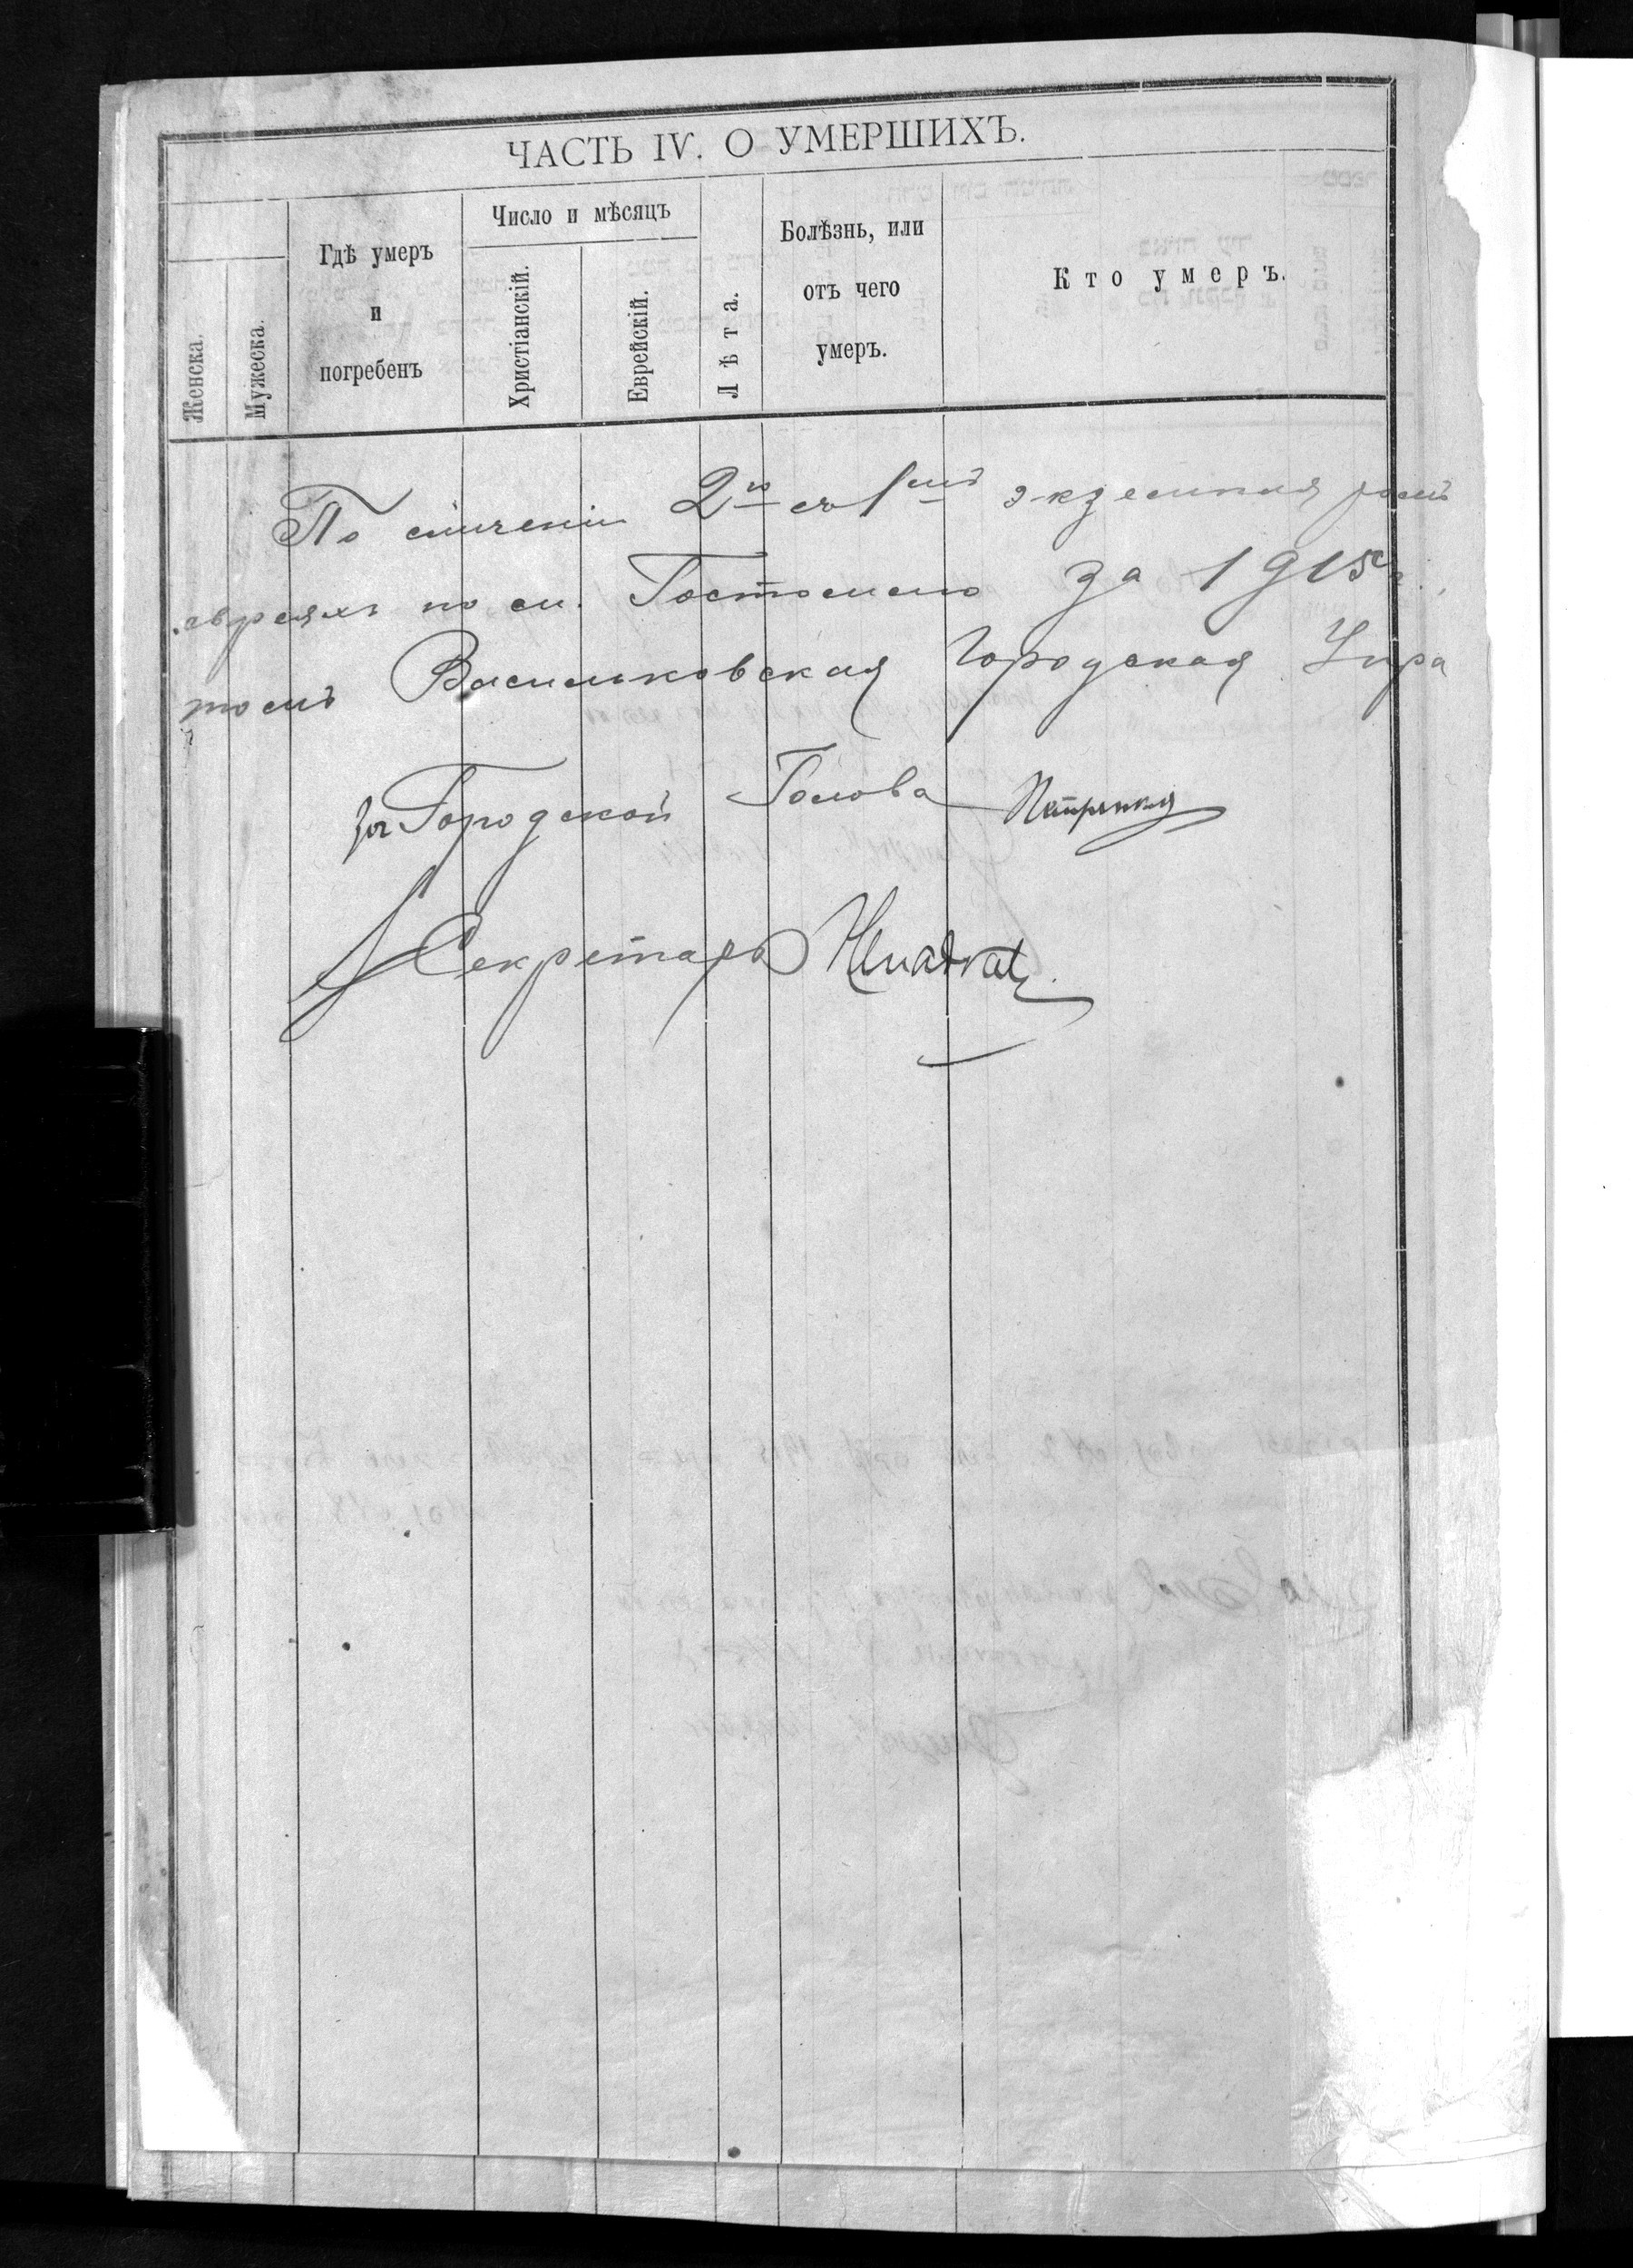 ЧАСТЬ IV. О УМЕРШИХЪ.
Женска.
Мужеска.
Гдѣ умеръ
и
погребенъ
Число и мѣсяцъ
Христіанскій.
Еврейскій.
Лѣта.
Болѣзнь, или
отъ чего
умеръ.
Кто умеръ.
По сличеніи 2го съ 1мъ экземпля ромъ
евреяхъ по м. Гостомелю за 1915 г.
томъ Васильковская Городская Упра
За Городской Голова
Секретарь